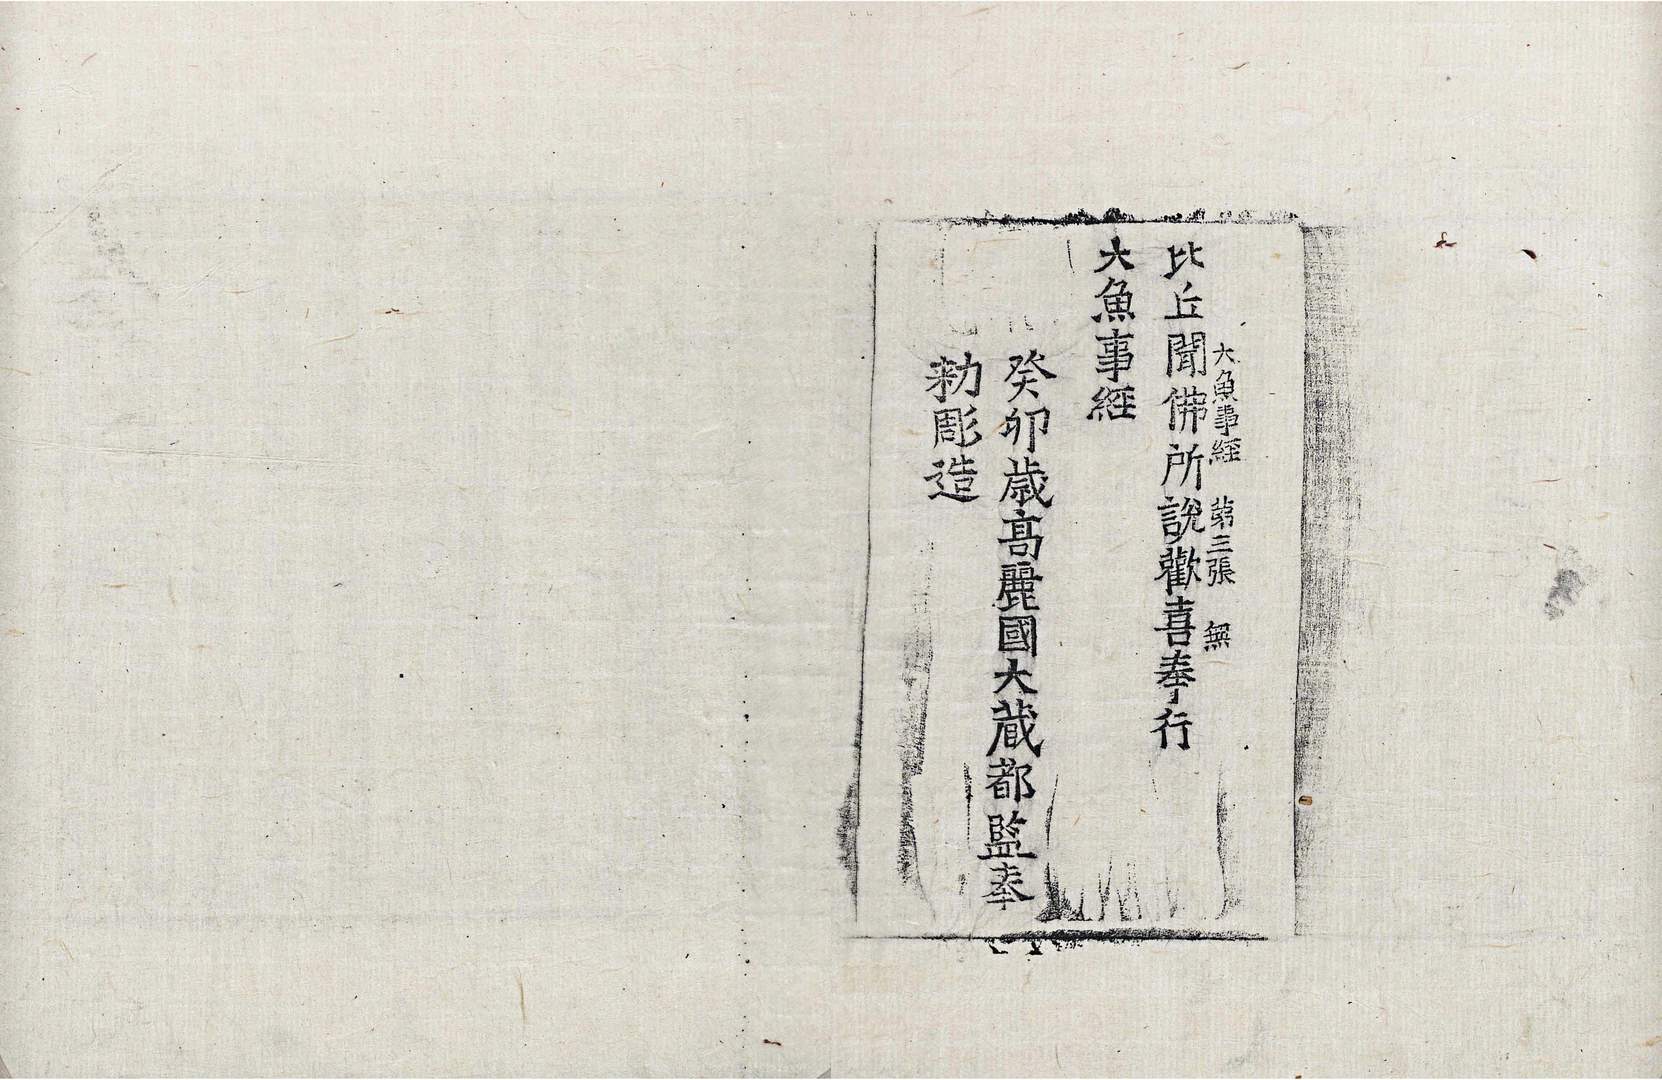 大魚事經 第三張 無
比丘聞佛所說歡喜奉行
大魚事經
癸卯歲高麗國大藏都監奉
勑彫造